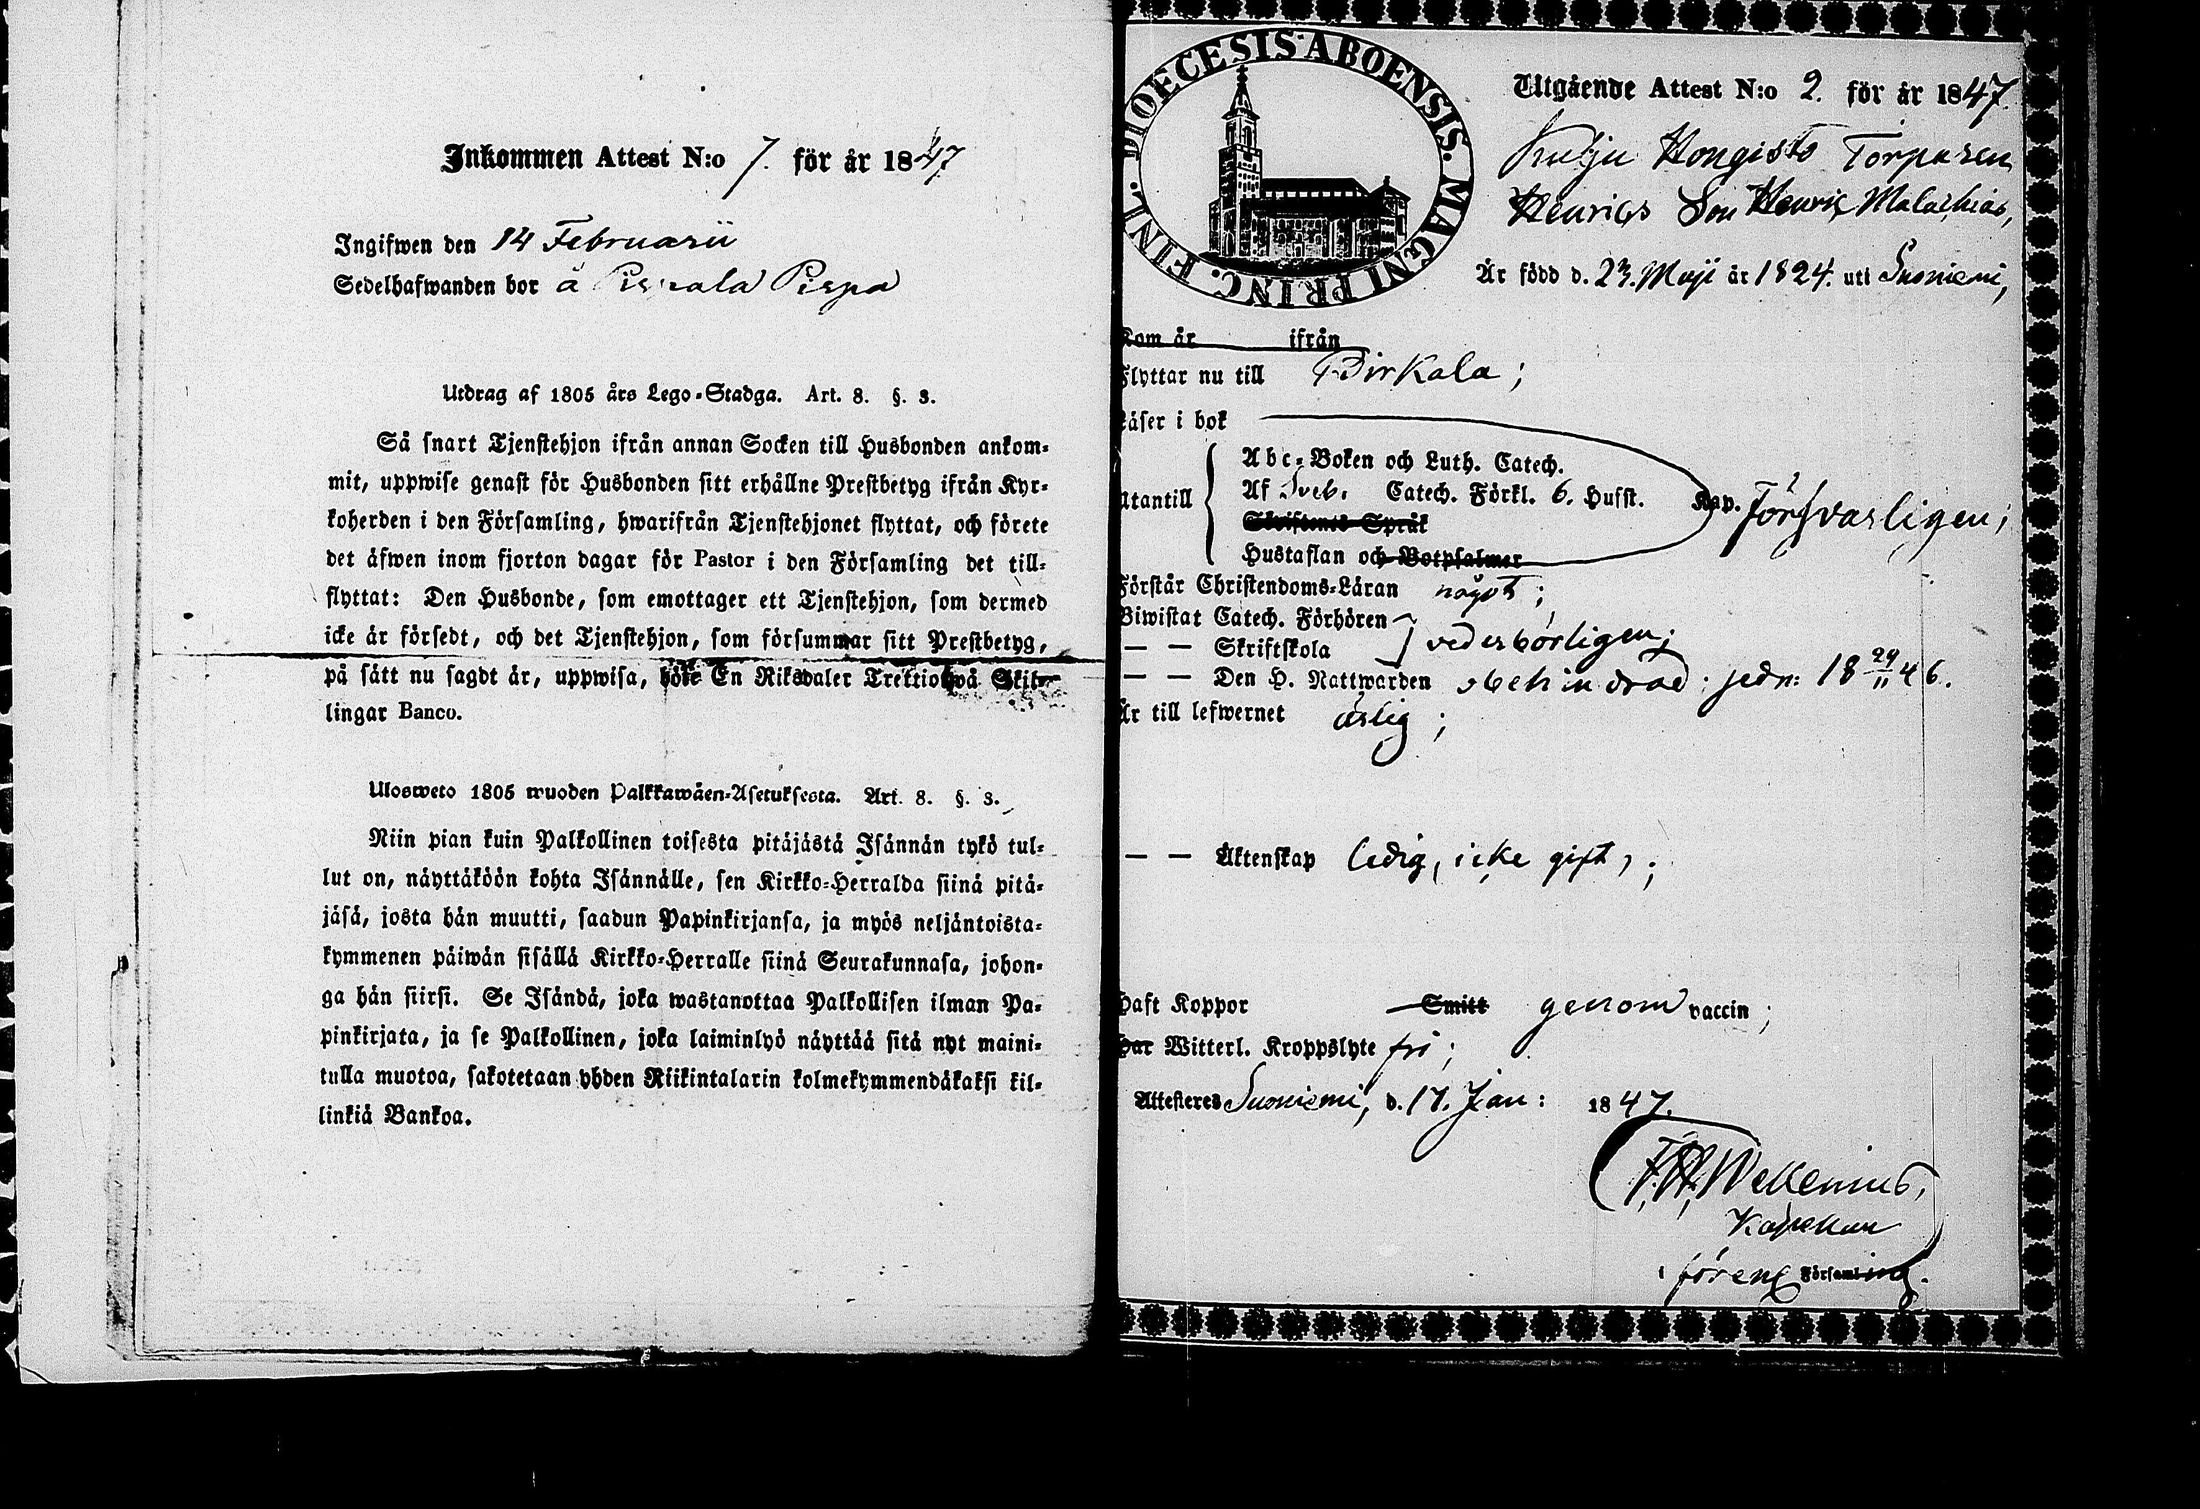 Inkommen Attest N:o 7. för år 1847
Ingifwen den 14 Februarii
Sedelhafwanden bor å Pispala Pispa
Utdrag af 1805 års Lego-Stadga. Art. 8. §. 3.
Så snart Tjenstehjon ifrån annan Socken till Husbonden ankom-
mit, uppwise genast för Husbonden sitt erhållne Prestbetyg ifrån Kyr-
koherden i den Församling, hwarifrån Tjenstehjonet flyttat, och förete
det äfwen inom fjorton dagar för Pastor i den Församling det till-
flyttat: Den Husbonde, som emottager ett Tjenstehjon, som dermed
icke är försedt, och det Tjenstehjon, som försummar sitt Prestbetyg,
på sätt nu sagdt är, uppwisa, böte En Riksdaler Trettiotwå Skil-
lingar Banco.
Ulosweto 1805 wuoden Palkkawäen-Asetuksesta. Art. 8. §. 3.
Niin pian kuin Palkollinen toisesta pitäjästä Isännän tykö tul-
lut on, näyttäköön kohta Isännälle, sen Kirkko-Herralda siinä pitä-
jäsä, josta hän muutti, saadun Papinkirjansa, ja myös neljäntoista-
kymmenen päiwän sisällä Kirkko-Herralle siinä Seurakunnasa, johon-
ga hän siirsi. Se Isändä, joka wastanottaa Palkollisen ilman Pa-
pinkirjata, ja se Palkollinen, joka laiminlyö näyttää sitä nyt maini-
tulla muotoa, sakotetaan yhden Riikintalarin kolmekymmendäkaksi kil-
linkiä Bankoa.
DIOECESIS ABOENSIS. MAGNI PRINC. FINL.
Utgående Attest N:o 2. för år 1847.
Kulju Hongisto Torparen
Henrics Son Henric Malachias,
Är född d. 23. Maji år 1824. uti Suoniemi,
Kom år ifrån
Flyttar nu till Birkala;
Läser i bok
Utantill
Abc-Boken och Luth. Catech.
Af Sveb. Catech. Förkl. 6. Hufst. Kap. Försvarligen;
Skriftenes Språk
Hustaflan och Botpsalmer
Förstår Christendoms-Läran något;
Biwistat Catech. Förhören
— — Skriftskola vederbörligen;
— — Den H. Nattwarden obehindrad; sedn: 18 29/11 46.
Är till lefwernet ärlig;
— — Äktenskap ledig, icke gift,;
Haft Koppor Smitt genom vaccin;
Har Witterl. Kroppslyte fri;
Attesteres Suoniemi, d. 17. Jan: 1847.
Wellenius,
Kapellan
i förenx Församling.